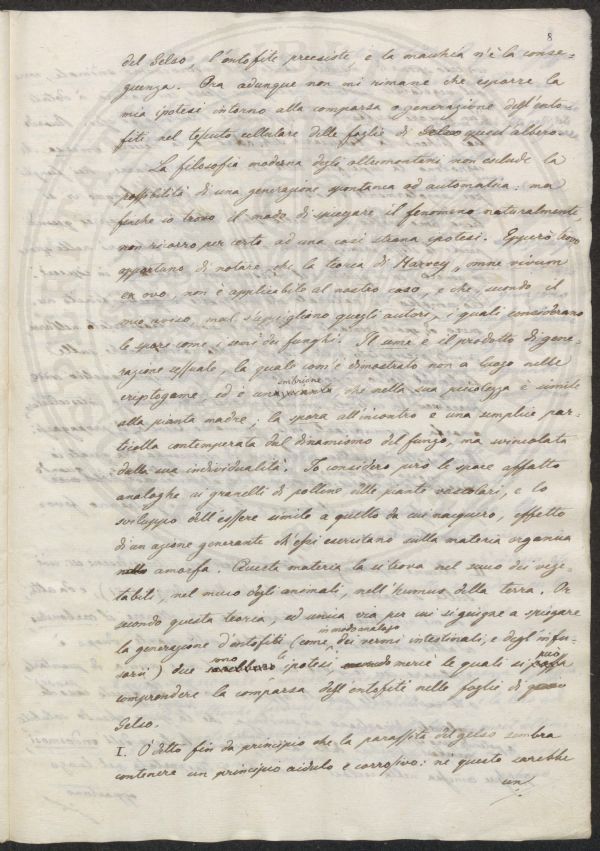 8
del Gelso l'entofite preesiste, e la macchia n'è la conse-
guenza. Ora adunque non mi rimane che esporre la
mia ipotesi intorno alla comparsa o generazione degl'ento-
fiti nel tessuto cellulare delle foglie di quest'albero.
La filosofia moderna degli allemontani non esclude la
possibilità di una generazione spontanea od automatica: ma
finche io trovo il modo di spiegare il fenomeno naturalmente,
non ricorro per certo ad una così strana ipotesi. Eppure trovo
opportuno di notare che la teoria di Harvey, omne vivum
ex ovo, non è applicabile al nostro caso, e che, secondo il
mio avviso, mal s'appigliono quegli autori, i quali considerano
le spore come i semi dei funghi. Il seme è il prodotto di gene-
razione sessuale, la quale com'è dimostrato non a luogo nelle
criptogame, ed è un embrione che nella sua picciolezza è simile
alla pianta madre; la spora all'incontro è una semplice par-
ticella contemperata dal dinamismo del fungo, ma svincolata
dalla sua individualità. Io considero però le spore affatto
analoghe ai granelli di polline delle piante vascolari, e lo
sviluppo dell'essere simile a quello da cui nacquero, effetto
di un azione generante ch'essi esercitano sulla materia organica
amorfa. Questa materia la si trova nel succo dei vege-
tabili, nel muco degli animali, nell'humus della terra. Or
secondo questa teoria, ed unica via per cui si giugne a spiegare
la generazione d'entofiti (come in modo analogo dei vermi intestinali, e degl'infu-
sorii) due sono le ipotesi mercè le quali si può
comprendere la comparsa degl'entofiti nelle foglie di
Gelso.
I. Ò detto fin da principio che la parassita del gelso sembra
contenere un principio acidulo e corrosivo: nè questo sarebbe
un